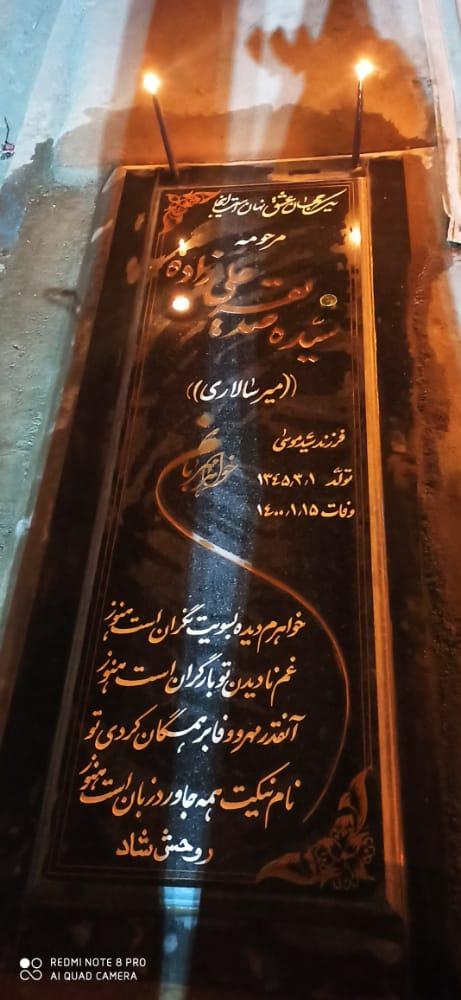 یک جهان عشق نهان است اینجا
مرحومه
سیده صدیقه تقی زاده
((میرسالاری))
فرزند سید موسی
تولد ۱۳۴۵/۳/۱
وفات ۱۴۰۰/۱/۱۵
خواهرم دیده بسویت نگران است هنوز
غم نادیدن تو بار گران است هنوز
آنقدر مهر و وفا بر همگان کردی تو
نام نیکت همه جا ورد زبان است هنوز
روحش شاد
REDMI NOTE 8 PRO
AI QUAD CAMERA